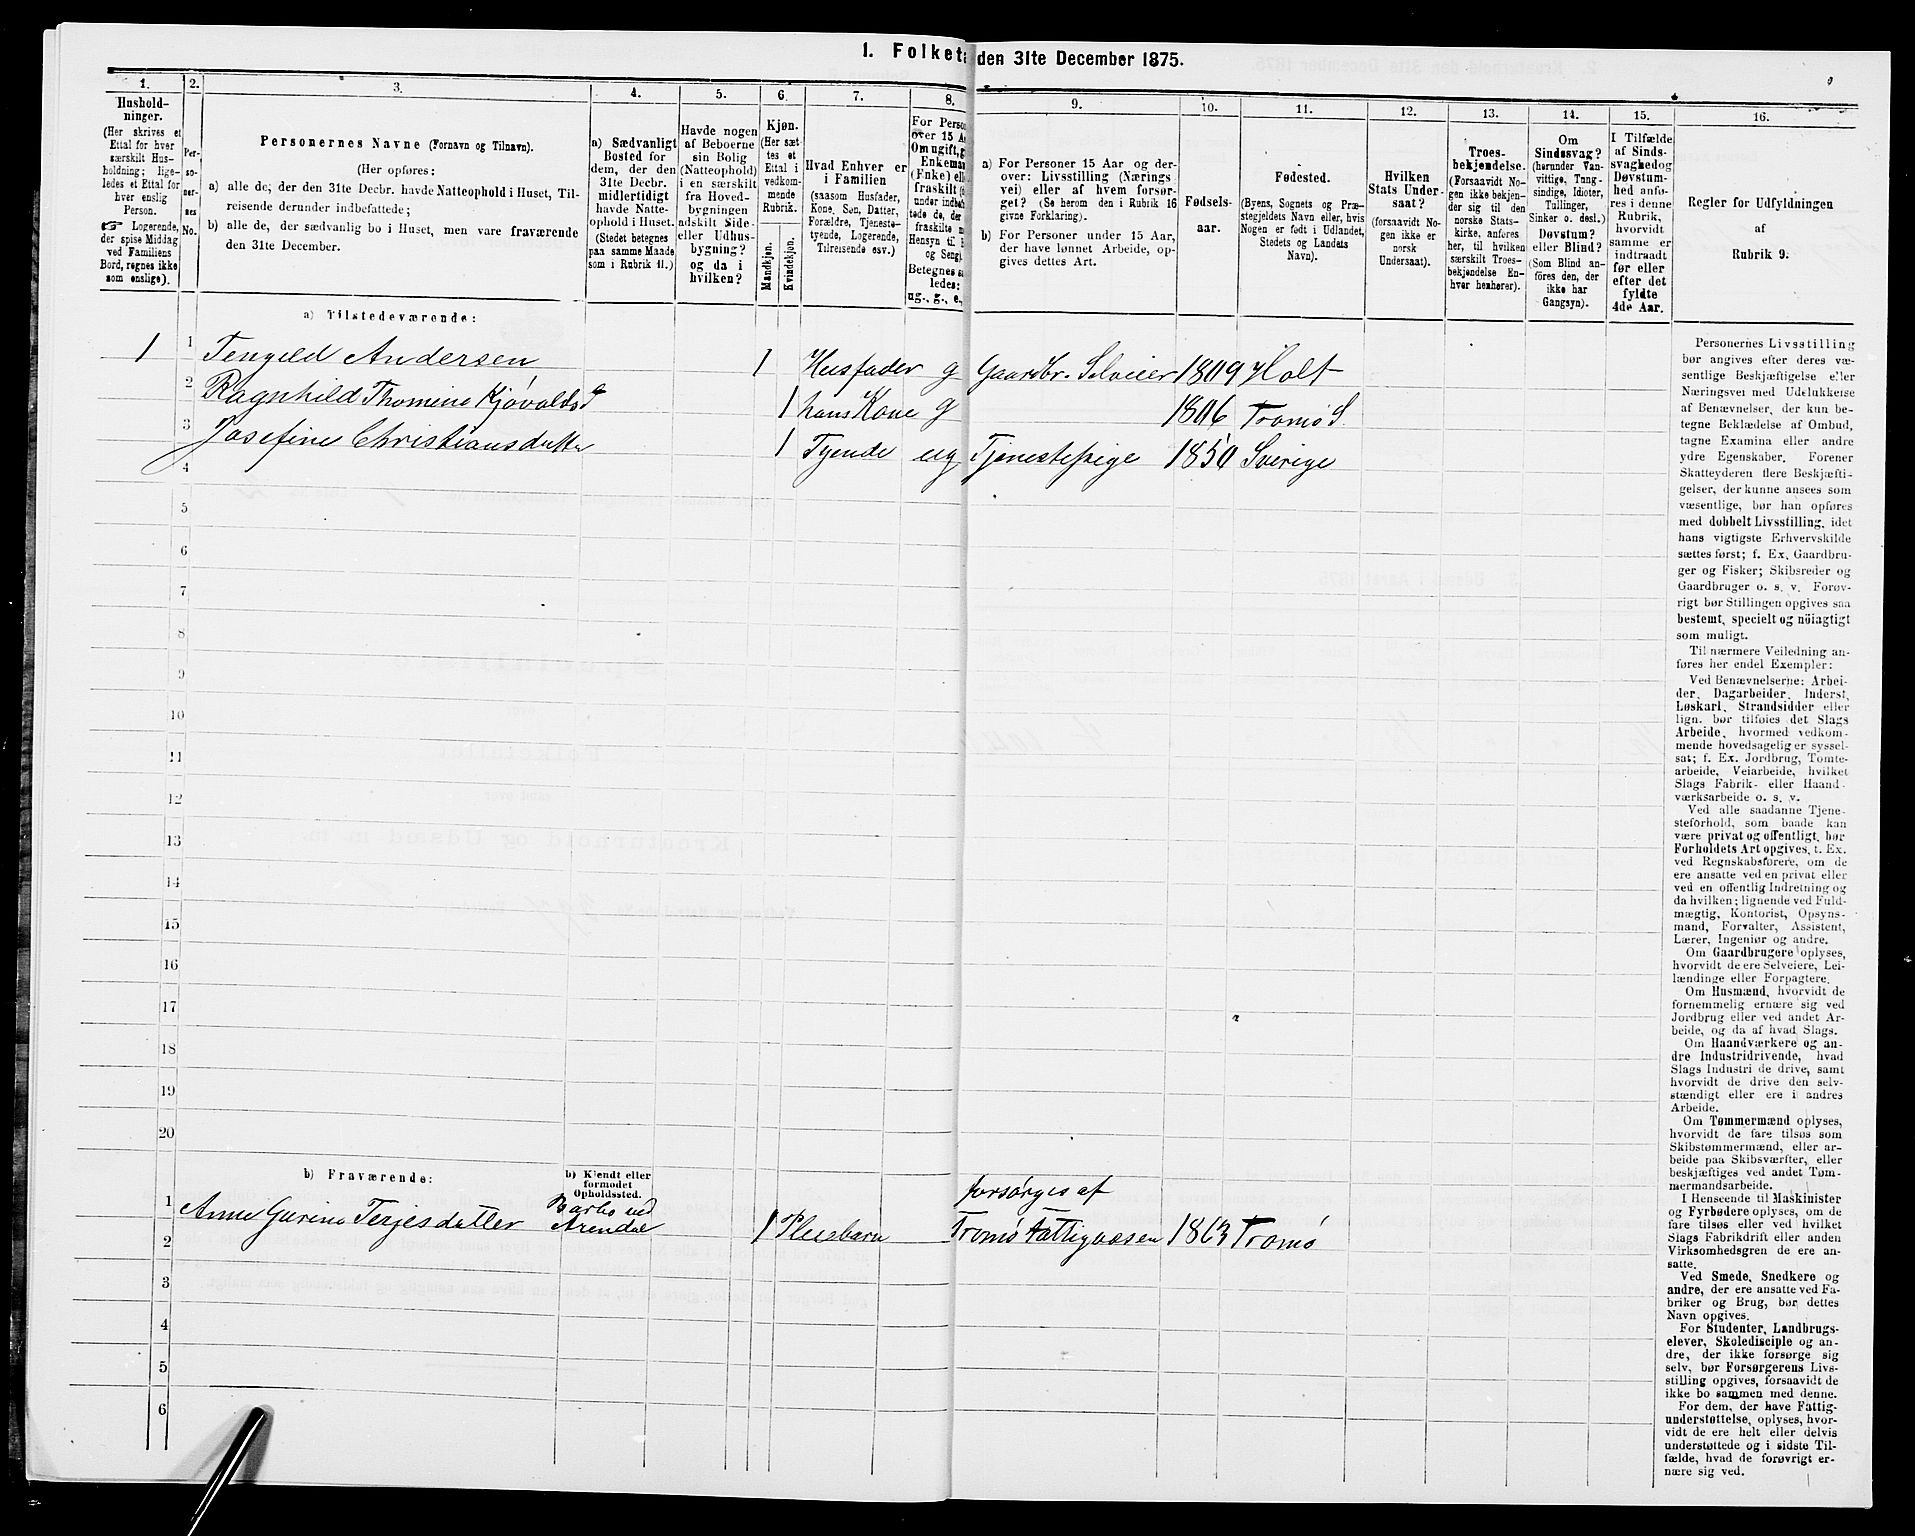 1. Folketæ den 31te December 1875.
1. 2. 3. 4. 5. 6. 7. 8. 9. 10. 11. 12. 13. 14. 15. 16.
Hushold-
ninger.
(Her skrives et
Ettal for hver
særskilt Hus-
holdning; lige-
ledes et Ettal for
hver enslig
Person.
☞ Logerende,
der spise Middag
ved Familiens
Bord, regnes ikke
som enslige).
Per-
so-
ner-
nes
No.
Personernes Navne (Fornavn og Tilnavn).
(Her opføres:
a) alle de, der den 31te Decbr. havde Natteophold i Huset, Til-
reisende derunder indbefattede;
b) alle de, der sædvanlig bo i Huset, men vare fraværende
den 31te December.
a) Sædvanligt
Bosted for
dem, der den
31te Decbr.
midlertidigt
havde Natte-
ophold i Huset.
(Stedet betegnes
paa samme Maade
som i Rubrik 11.)
Havde nogen
af Beboerne
sin Bolig
(Natteophold)
i en særskilt
fra Hoved-
bygningen
adskilt Side-
eller Udhus-
bygning?
og da i
hvilken?
Kjøn.
(Her sæt-
tes et
Ettal i
vedkom-
mende
Rubrik.
Mandkjøn.
Kvindekjøn.
Hvad Enhver er
i Familien
(saasom Husfader,
Kone, Søn, Datter,
Forældre, Tjeneste-
tyende, Logerende,
Tilreisende osv.)
For Perso
over 15 Aa
Om ugift, g
Enkeman
(Enke) elle
fraskilt (
under indbe
tede de, der
fraskilte m
Hensyn til B
og Seng).
Betegnes sa
ledes:
ug., g., e.,
a) For Personer 15 Aar og der-
over: Livsstilling (Nærings
vei) eller af hvem forsør-
get? (Se herom den i Rubrik 16
givne Forklaring).
b) For Personer under 15 Aar,
der have lønnet Arbeide, op-
gives dettes Art.
Fødsels-
aar.
Fødested.
(Byens, Sognets og Præ-
stegjeldets Navn eller, hvis
Nogen er født i Udlandet,
Stedets og Landets
Navn).
Hvilken
Stats Under-
saat?
(forsaavidt No-
gen ikke er
norsk
Undersaat).
Troes-
bekjendelse.
(Forsaavidt No-
gen ikke bekjen-
der sig til den
norske Stats-
kirke, anføres
her, til hvilken
særskilt Troes-
bekjendelse En-
hver henhører).
Om
Sindssvag?
(herunder Van-
vittige, Tung-
sindige, Idioter,
Tullinger,
Sinker o. desl.)
Døvstum?
eller Blind?
(Som Blind an-
føres den, der
ikke har
Gangsyn).
I Tilfælde
af Sinds-
svaghed og
Døvstum-
hed anfø-
res i denne
Rubrik,
hvorvidt
samme er
indtraadt
før eller
efter det
fyldte
4de Aar.
Regler for Udfyldningen
af
Rubrik 9.
a) Tilstedeværende:
1 1 Tengeld Andersen 1 Husfader g Gaardbr. Selveier 1809 Holt
2 Ragnhild Thomine Kjøvaldsd 1 hans Kone g 1806 Tromø S.
3 Josefine Christiansdatter 1 Tyende ug Tjenestepige 1850 Sverige
4
5
6
7
8
9
10
11
12
13
14
15
16
17
18
19
20
b) Fraværende:
b) Kjendt eller
formodet
Opholdssted.
forsørges af
1 Anne Gurine Terjesdatter Barbo ved
Arendal 1 Pleiebarn Tromø Fattigvæsen 1863 Tromø
2
3
4
5
6
Personernes Livsstilling
bør angives efter deres væ-
sentlige Beskjæftigelse eller
Næringsvei med Udelukkelse
af Benævnelser, der kun be-
tegne Beklædelse af Ombud,
tagne Examina eller andre
ydre Egenskaber. Forener
Skatteyderen flere Beskjæfti-
gelser, der kunne ansees som
væsentlige, bør han opføres
med dobbelt Livsstilling, idet
hans vigtigste Erhvervskilde
sættes først; f. Ex. Gaardbru-
ger og Fisker; Skibsreder og
Gaardbruger o. s. v. Forøv-
rigt bør Stillingen opgives saa
bestemt, specielt og nöiagtigt
som muligt.
Til nærmere Veiledning an-
føres her endel Exempler:
Ved Benævnelserne: Arbei-
der, Dagarbeider, Inderst,
Løskarl, Strandsidder eller
lign. bør tilføies det Slags
Arbeide, hvormed vedkom-
mende hovedsagelig er syssel-
sat; f. Ex. Jordbrug, Tomte-
arbeide, Veiarbeide, hvilket
Slags Fabrik- eller Haand-
værksarbeide o. s. v.
Ved alle saadanne Tjene-
steforhold, som baade kan
være privat og offentligt, bør
Forholdets Art opgives, t. Ex.
ved Regnskabsførere, om de
ere ansatte ved en privat eller
ved en offentlig Indretning og
da hvilken; lignende ved Fuld-
mægtig, Kontorist, Opsyns-
mand, Forvalter, Assistent,
Lærer, Ingeniør og andre.
Om Gaardbrugere oplyses,
hvorvidt de ere Selveiere, Lei-
lændinge eller Forpagtere.
Om Husmænd, hvorvidt de
fornemmelig ernære sig ved
Jordbrug eller ved andet Ar-
beide, og da af hvad Slags.
Om Haandværkere og an-
dre Industridrivende, hvad
Slags Industri de drive, samt
hvorvidt de drive den selv-
stændigt eller ere i andres
Arbeide.
Om Tømmermænd oplyses,
hvorvidt de fare tilsøs som
Skibstømmermænd, eller ar-
beide paa Skibsværfter, eller
beskjæftiges ved andet Tøm-
mermandsarbeide.
I Henseende til Maskinister
og Fyrbødere oplyses, om de
fare tilsøs eller ved hvilket
Slags Fabrikdrift eller anden
Virksomhedsgren de ere an-
satte.
Ved Smede, Snedkere og
andre, der ere ansatte ved Fa-
briker og Brug, bør dettes
Navn opgives.
For Studenter, Landbrugs-
elever, Skoledisciple og an-
dre, der ikke forsørge sig
selv, bør Forsørgerens Livs-
stilling opgives, forsaavidt de
ikke bo sammen med denne.
For dem, der have Fattig-
understøttelse, oplyses, hvor-
vidt de ere helt eller delvis
understøttede og i sidste Til-
fælde, hvad de forøvrigt er-
nære sig ved.